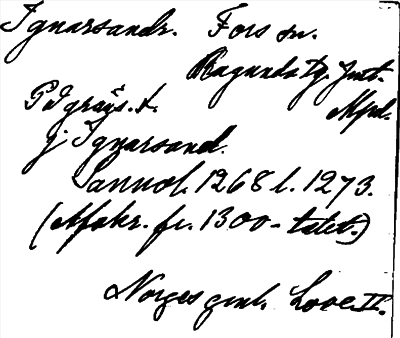 Ignarsandr. Fors sn.
Ragunda tg. Jmt.
Mpd.
P J grâŋs. t.
j Ignarsand.
Sannol. 1268 l. 1273.
(Afskr. fr. 1300-talet.)
Norges gml. Love II.